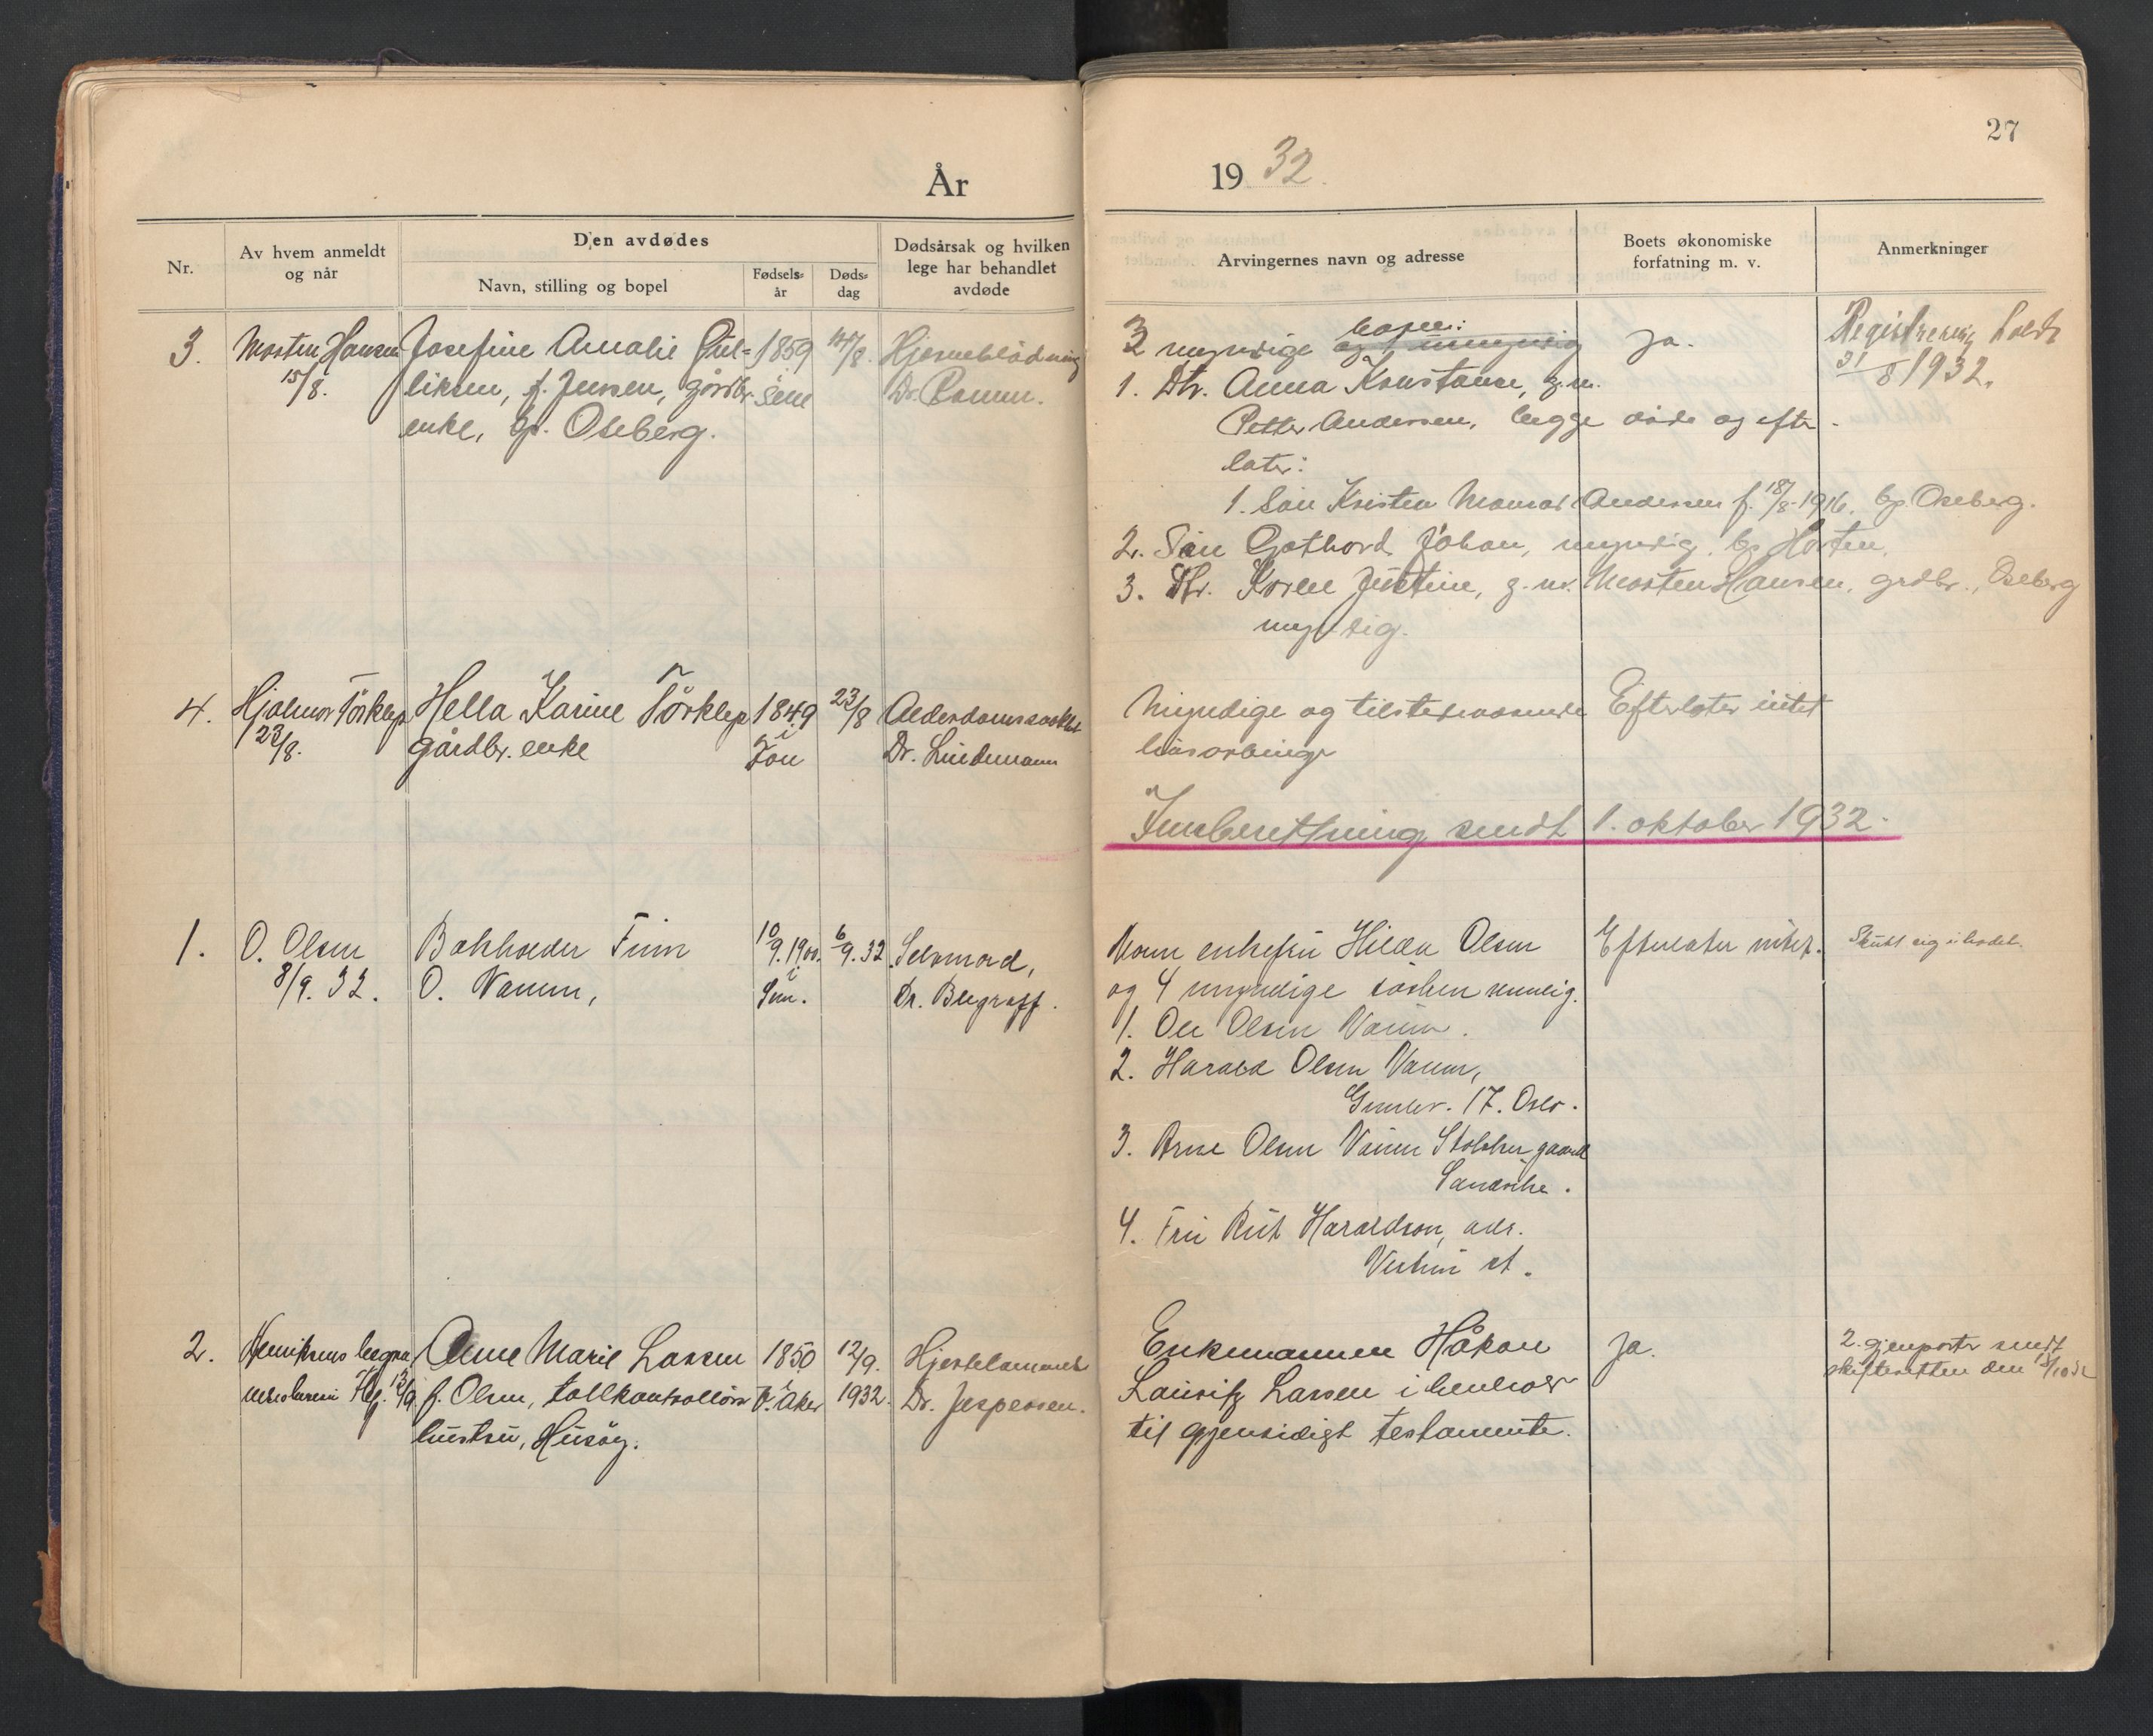 27
År
19 32.
Nr.
Av hvem anmeldt
og når
Den avdødes
Navn, stilling og bopel
Fødsels-
år
Døds-
dag
Dødsårsak og hvilken
lege har behandlet
avdøde
Arvingernes navn og adresse
Boets økonomiske
forfatning m. v.
Anmerkninger
3. Morten Hansen
15/8.
Josefine Amalie Gul-
liksen, f. Jensen, gårdbr.
enke, bp. Oseberg.
1859
i Sem
14/8.
Hjerneblødning
Dr.
3 myndige og 1 umyndig
1. Dtr. Anna Konstanse, g.m.
Petter Andersen, begge døde og efter-
later:
1. Søn Kristen Andersen f. 18/8-1916, bp. Oseberg.
2. Søn Gothard Johan, myndig, bp Horten.
3. Dtr. Karen Justine, g. m. Morten Hansen, grdbr., Oseberg
myndig.
Ja.
Registrering holdt
31/8 1932.
4. Hjalmar Tørklep
23/8.
Hella Karine Tørklep
gårdbr. enke
1849
i
23/8
Alderdomssvakhet
Dr. Lindemann
Myndige og tilstedeværende
livsarvinger
Efterlater intet
Innberettning sendt 1. oktober 1932.
1. O. Olsen
8/9. 32.
Bokholder Finn
O. Vamm,
10/9. 1900.
i
Sem.
6/9. 32
Selvmord,
Dr.
Mor enkefru Hilda Olsen
og 4 myndige søsken nemlig.
1. Ole Olsen Vamm.
2. Harald Olsen Vamm,
17. Oslo.
3. Arne Olsen Vamm gaard
4. Fru Rut Haraldson, adr.
st.
Efterlater intet.
Skutt sig i hodet.
2. Henriksens begra-
velsesbureau Tbg. 13/9
Anne Marie Larsen
f. Olsen, tollkontrollørs
hustru, Husøy.
1850
i
V. Aker
12/9.
1932.
Hjertelammelse
Dr. Jespersen.
Enkemannen Håkon
Lauritz Larsen i henhold
til gjensidigt testamente.
Ja.
2. gjenparter sendt
skifteretten den